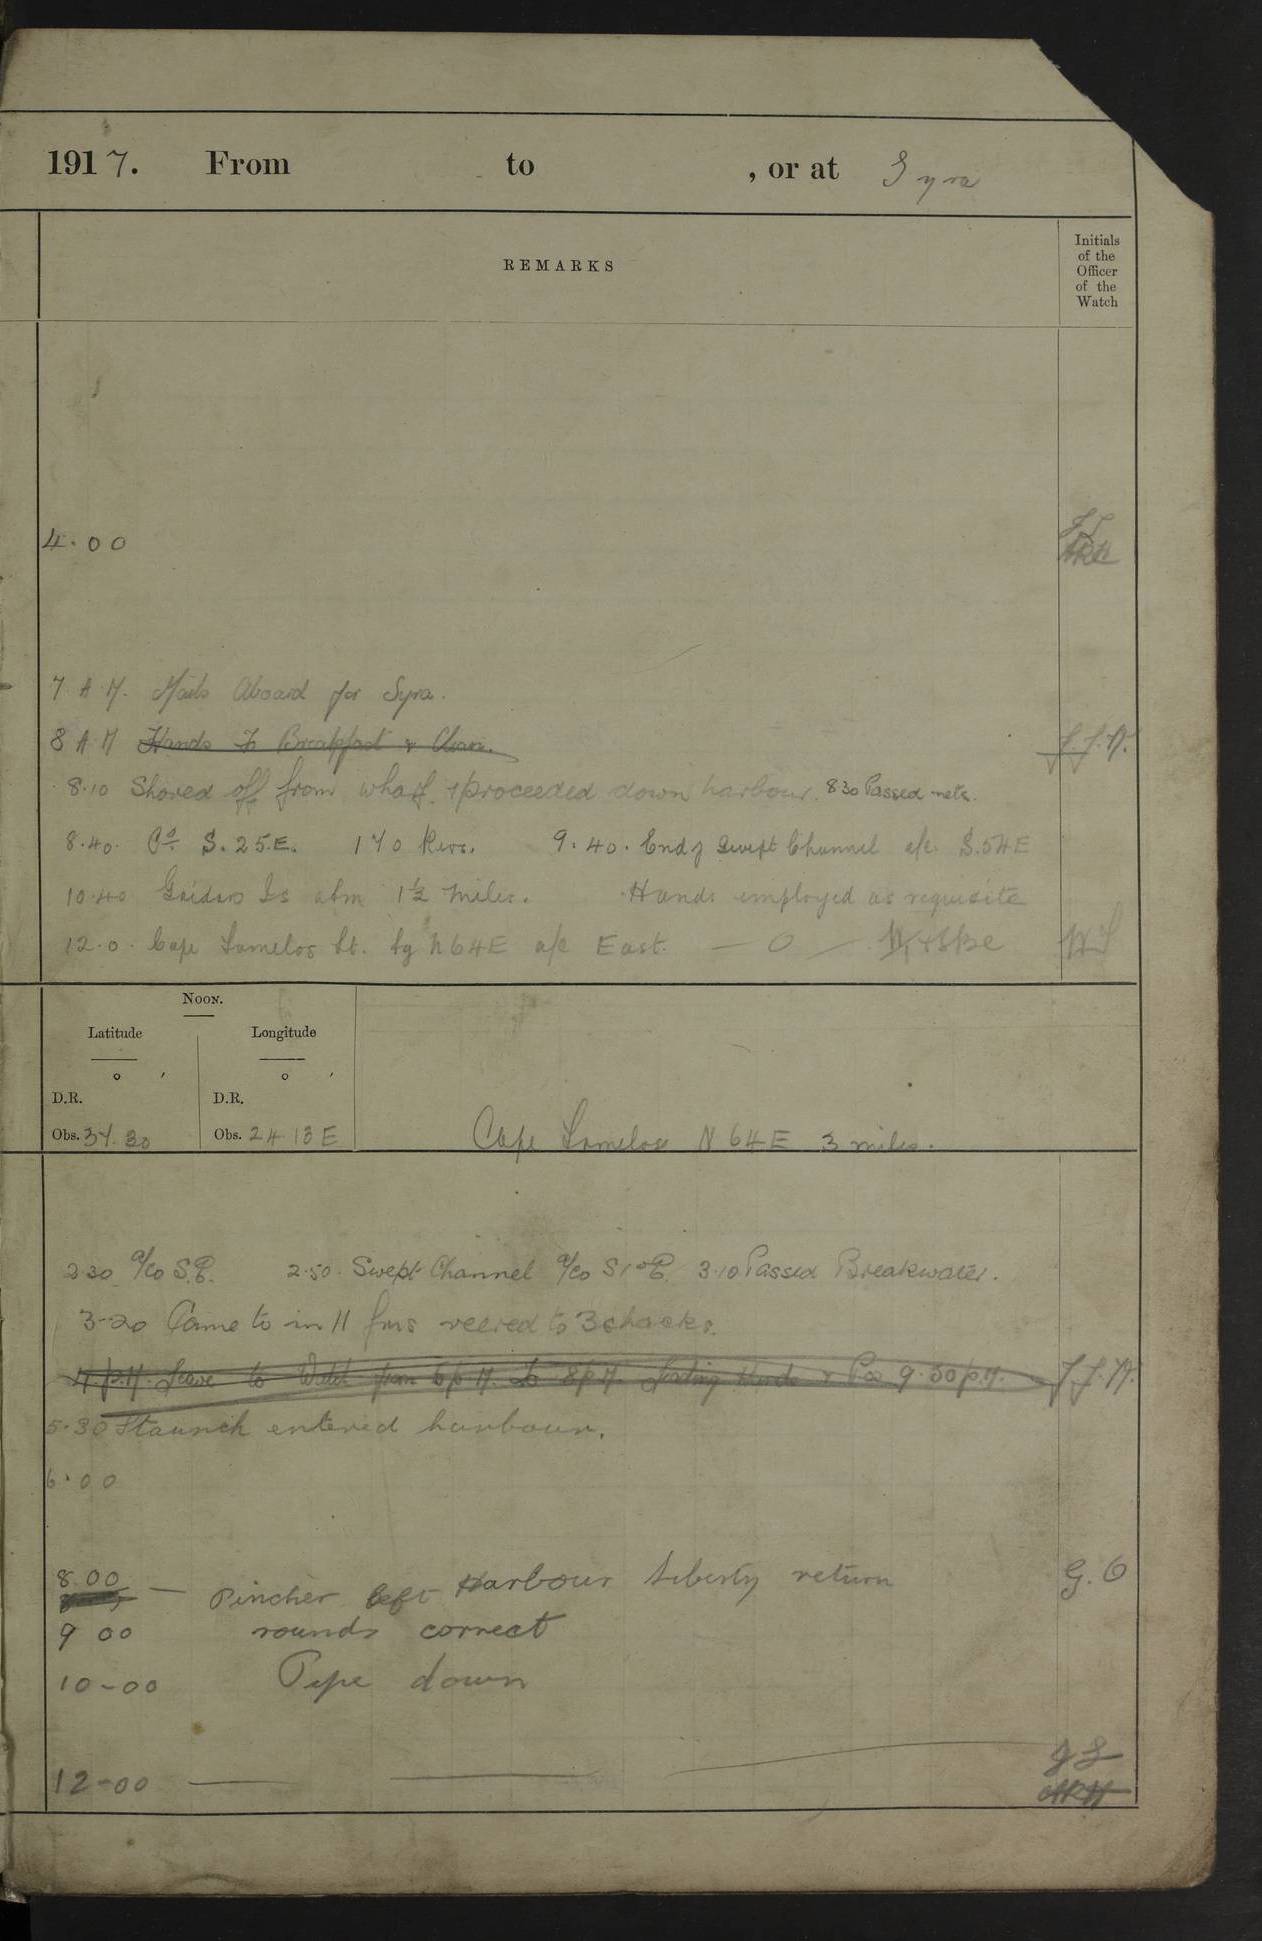 1917. From to , or at Syra
REMARKS
Initials
of the
Officer
of the
Watch
4.00
7 A.M. Mails Aboard for Syra.
8 A.M Hands To Breakfast & Clean. J.J.N.
8.10 Shoved off from wharf & proceeded down harbour. 8 30 Passed nets.
8.40. Co S.25E. 170 Revs. 9.40. End of Swept Channel a/c S.54E
10.40 Gaidaro Is abm 1½ miles. Hands employed as requisite
12.0. Cape Lumelos Lt. bg N64E a/c East. — 0 —
NOON.
Latitude Longitude
° ′ ° ′
D.R. D.R.
Obs. 37.30 Obs. 24 13 E
Cape Lumelos N 64E 3 miles.
2.30 a/co S.E. 2.50. Swept Channel a/co S1°E. 3.10 Passed Breakwater.
3-20 Came to in 11 fms veered to 3 shackles.
4 p.M. Leave to Watch from 5 p M. To 8 p M. Leading Hands & Pos 9.30 p.M. J.J.N.
5.30 Staunch entered harbour.
6.00
8.00 — Pincher left Harbour Liberty return G.O
9 00 rounds correct
10-00 Pipe down
12-00